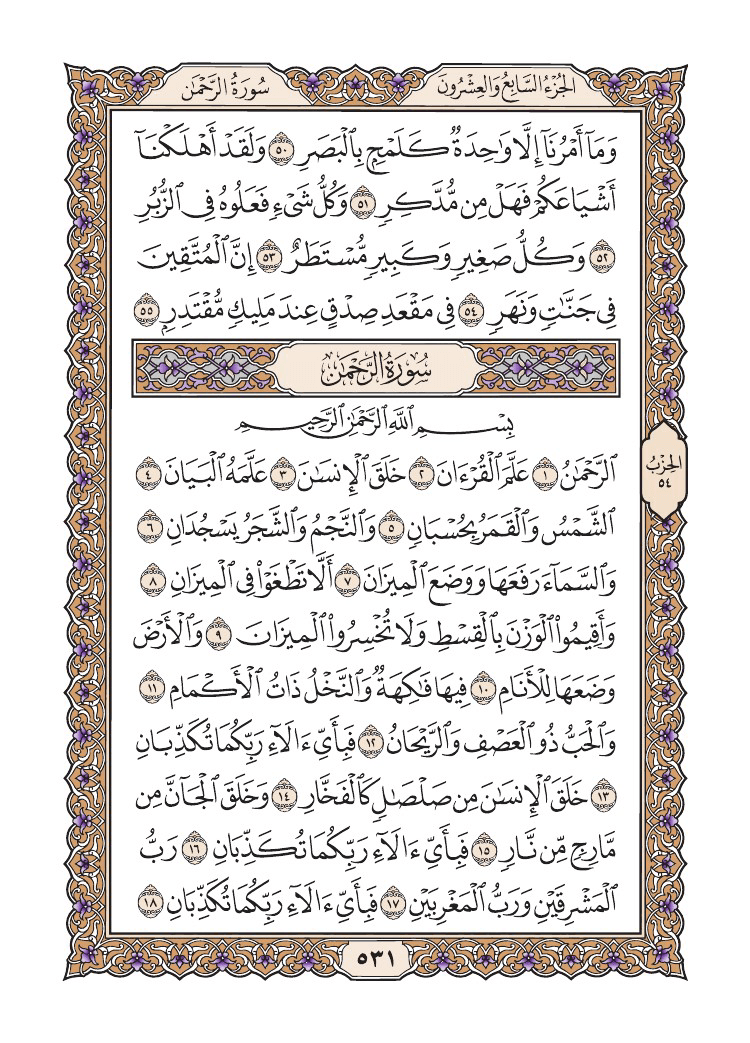 الجُزْءُ السَّابِعُ وَالعِشْرُونَ
سُورَةُ الرَّحْمَٰن
وَمَآ أَمْرُنَآ إِلَّا وَٰحِدَةٌ كَلَمْحٍۭ بِٱلْبَصَرِ ۝٥٠ وَلَقَدْ أَهْلَكْنَآ
أَشْيَاعَكُمْ فَهَلْ مِن مُّدَّكِرٍ ۝٥١ وَكُلُّ شَىْءٍ فَعَلُوهُ فِى ٱلزُّبُرِ
۝٥٢ وَكُلُّ صَغِيرٍ وَكَبِيرٍ مُّسْتَطَرٌ ۝٥٣ إِنَّ ٱلْمُتَّقِينَ
فِى جَنَّٰتٍ وَنَهَرٍ ۝٥٤ فِى مَقْعَدِ صِدْقٍ عِندَ مَلِيكٍ مُّقْتَدِرٍۭ ۝٥٥
سُورَةُ الرَّحْمَٰن
بِسْمِ ٱللَّهِ ٱلرَّحْمَٰنِ ٱلرَّحِيمِ
ٱلرَّحْمَٰنُ ۝١ عَلَّمَ ٱلْقُرْءَانَ ۝٢ خَلَقَ ٱلْإِنسَٰنَ ۝٣ عَلَّمَهُ ٱلْبَيَانَ ۝٤
ٱلشَّمْسُ وَٱلْقَمَرُ بِحُسْبَانٍ ۝٥ وَٱلنَّجْمُ وَٱلشَّجَرُ يَسْجُدَانِ ۝٦
وَٱلسَّمَآءَ رَفَعَهَا وَوَضَعَ ٱلْمِيزَانَ ۝٧ أَلَّا تَطْغَوْا۟ فِى ٱلْمِيزَانِ ۝٨
وَأَقِيمُوا۟ ٱلْوَزْنَ بِٱلْقِسْطِ وَلَا تُخْسِرُوا۟ ٱلْمِيزَانَ ۝٩ وَٱلْأَرْضَ
وَضَعَهَا لِلْأَنَامِ ۝١٠ فِيهَا فَٰكِهَةٌ وَٱلنَّخْلُ ذَاتُ ٱلْأَكْمَامِ ۝١١
وَٱلْحَبُّ ذُو ٱلْعَصْفِ وَٱلرَّيْحَانُ ۝١٢ فَبِأَىِّ ءَالَآءِ رَبِّكُمَا تُكَذِّبَانِ
۝١٣ خَلَقَ ٱلْإِنسَٰنَ مِن صَلْصَٰلٍ كَٱلْفَخَّارِ ۝١٤ وَخَلَقَ ٱلْجَآنَّ مِن
مَّارِجٍ مِّن نَّارٍ ۝١٥ فَبِأَىِّ ءَالَآءِ رَبِّكُمَا تُكَذِّبَانِ ۝١٦ رَبُّ
ٱلْمَشْرِقَيْنِ وَرَبُّ ٱلْمَغْرِبَيْنِ ۝١٧ فَبِأَىِّ ءَالَآءِ رَبِّكُمَا تُكَذِّبَانِ ۝١٨
الحِزْبُ
٥٤
٥٣١